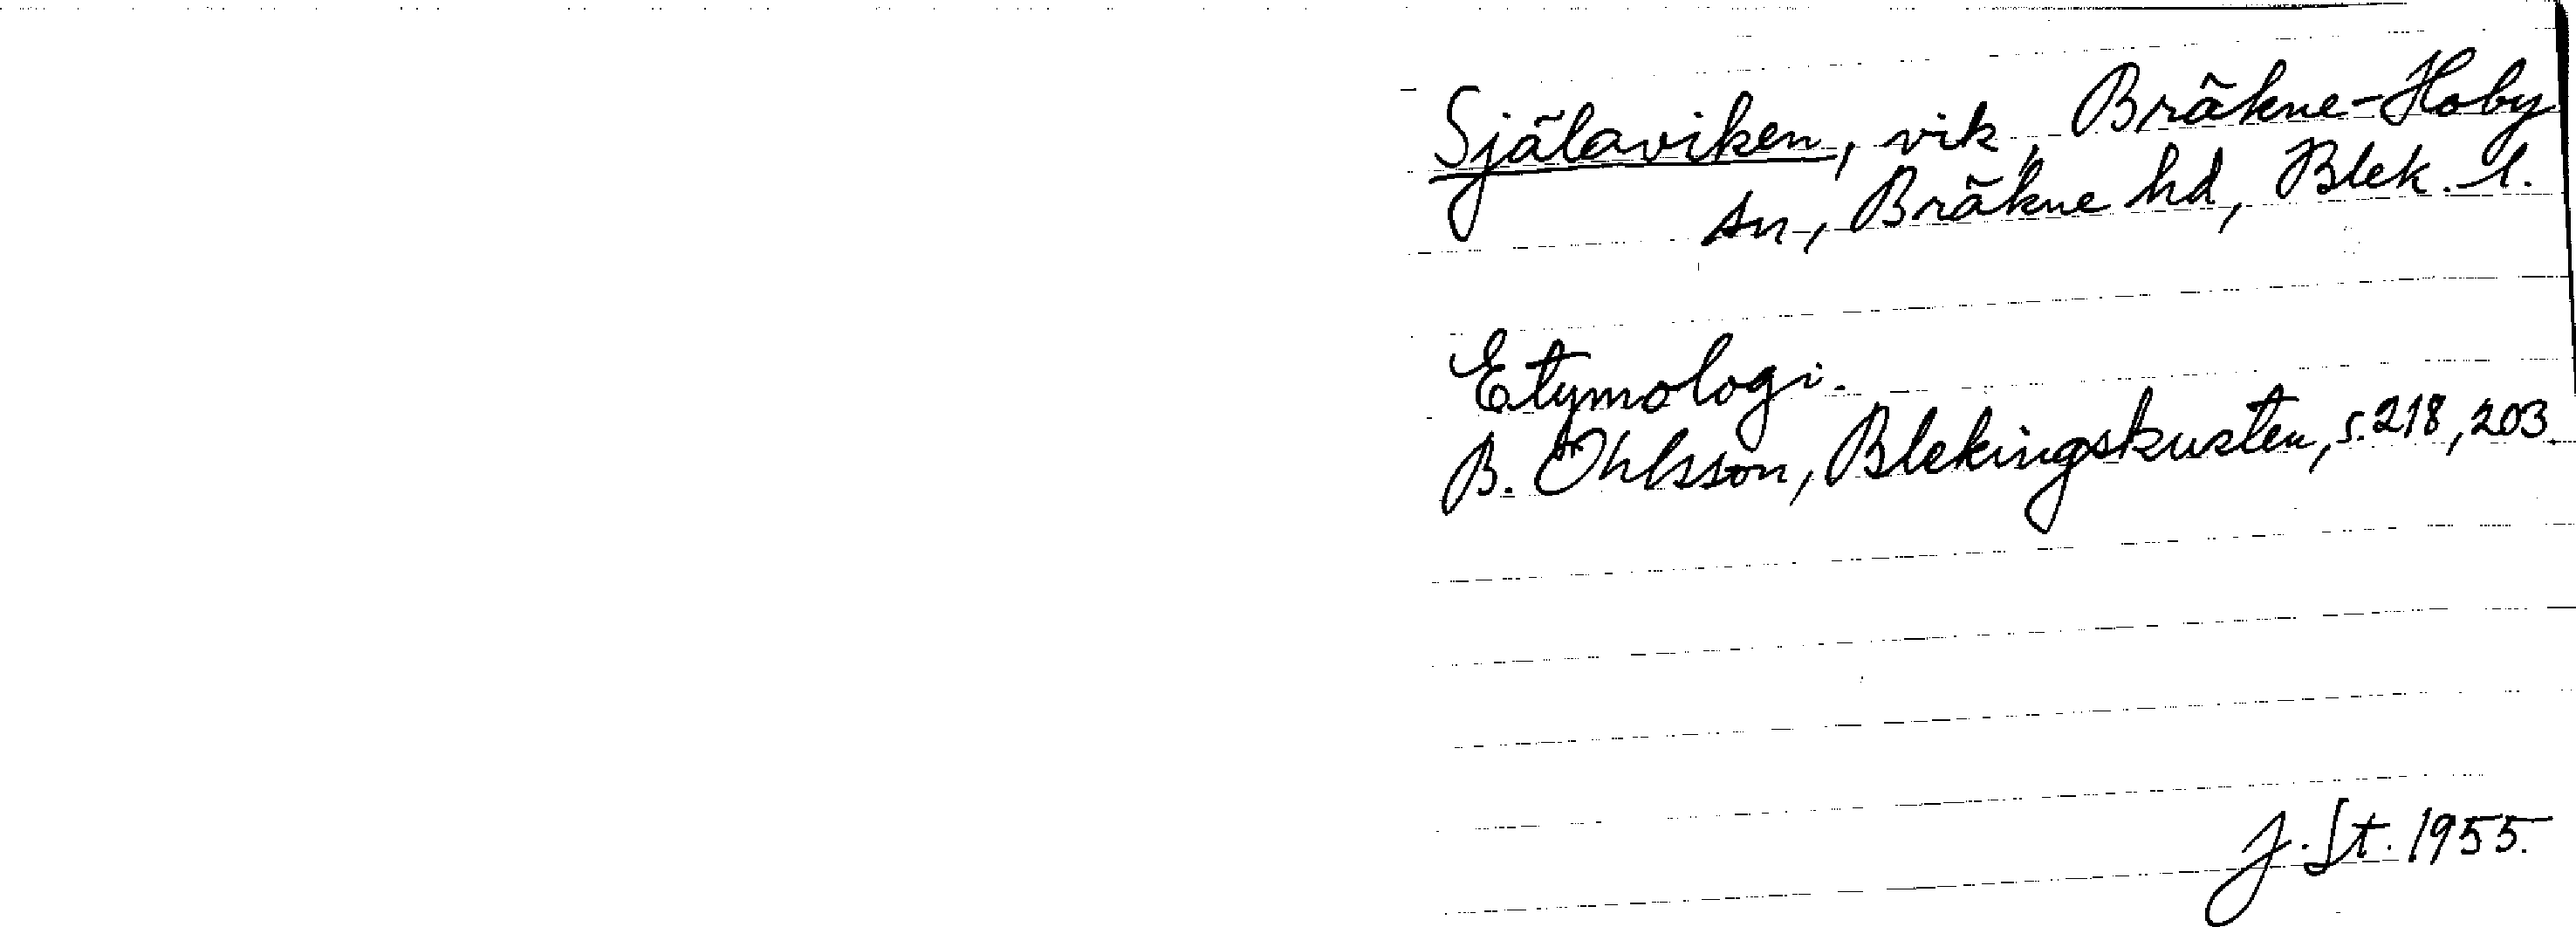 Själaviken, vik, Bräkne-Hoby
sn, Bräkne hd, Blek. l.
Etymologi.
B. Öhlsson, Blekingskusten, s. 218, 203
J. St. 1955.